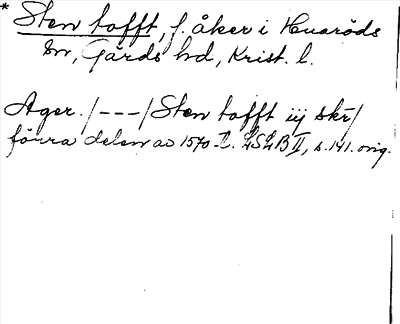 * Sten tofft, f. åker i Huaröds
sn, Gärds hd, Krist. l.
Ager. /---/ Sten tofft iij skr/
förra delen av 1570-t. LSLB II, s. 141. orig.